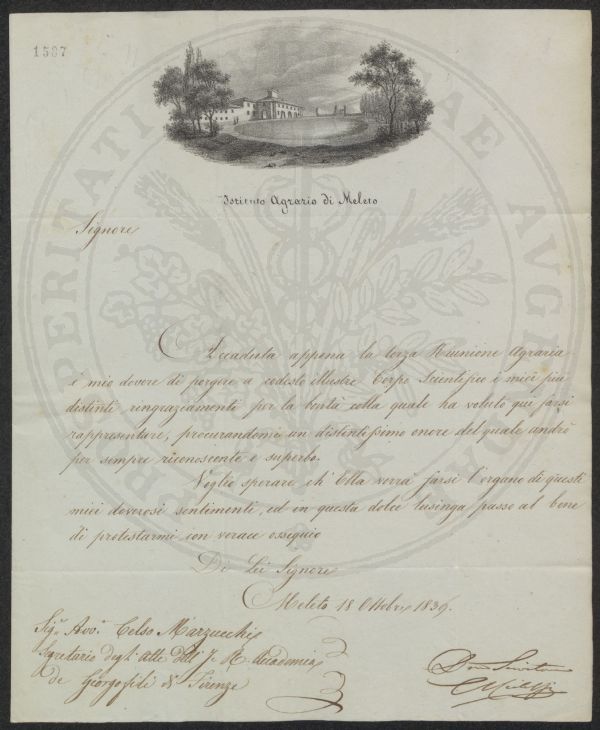 1587
Istituto Agrario di Meleto
Signore
Accaduta appena la terza Reunione Agraria
è mio dovere di porgere a codesto illustre Corpo Scientifico i miei più
distinti ringraziamenti per la bontà colla quale ha voluto qui farsi
rappresentare, procurandomi un distintissimo onore del quale andrò
per sempre riconoscente e superbo.
Voglio sperare ch' Ella vorrà farsi l'organo di questi
miei doverosi sentimenti, ed in questa dolce lusinga passo al bene
di protestarmi con verace ossequio
Di Lei Signore
Meleto 18 Ottobre 1839.
Sigr. Avv. Celso Marzucchi
Segretario degli Atti dell' I. R. Accademia
de Georgofili di Firenze